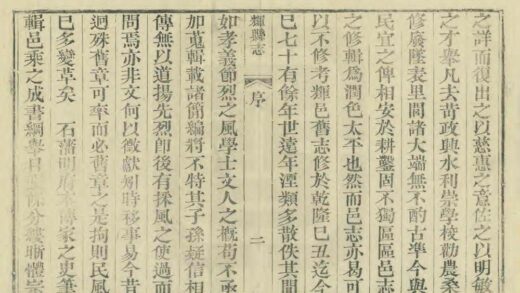 之詳而復出之以慈惠之意佐之以明敏
之才舉凡去苛政興水利崇學校勸農桑
修廢墜表里閈諸大端無不酌古準今與
民宜之俾相安於耕鑿固不獨區區邑志
之修輯為潤色太平也然而邑志亦曷可
以不修者輝邑舊志修於乾隆己丑迄今
已七十有餘年世遠年湮類多散佚其間
輝縣志
序
二
如孝義節烈之風學士文人之概苟不亟
加蒐輯載諸簡編將不特其子孫疑信相
傳無以道揚先烈即後有採風之使過而
問焉亦非文何以徵獻矧時移事易今昔
迥殊舊章可率而必舊章之是拘則民風
已多變革矣 石藩明府 傳家之史筆
輯邑乘之成書綱舉目 條分縷晰體宗